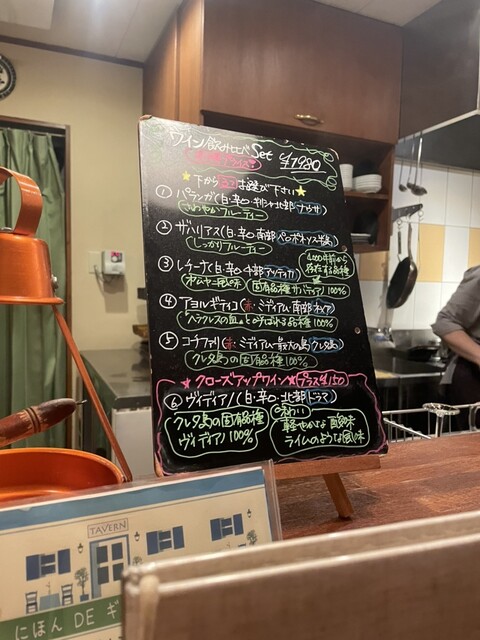 ワイン飲み比べSet ¥1980
⭐下から3つお選び下さい⭐
① パランガ(白・辛口・ギリシャ北部 ナウサ)
さわやかフルーティー
② ザハリアス(白・辛口・南部 ペロポネソス半島)
しっかりフルーティー
③ レチーナ(白・辛口・中部 アッティカ)
松ヤニ風味 固有品種サバティアノ100%
4000年前から存在する品種
④ アヨルギティコ(赤・ミディアム・南部 ネメア)
ヘラクレスの血🩸と呼ばれる品種 100%
⑤ コチファリ(赤・ミディアム・最大の島 クレタ島)
クレタ島の固有品種100%
★クローズアップワイン★プラス¥150
⑥ ヴィディアノ(白・辛口・北部 ドラマ)
クレタ島の固有品種
ヴィディアノ 100%
軽やかな酸味
ライムのような風味
TAVERN
にほん DE ギ